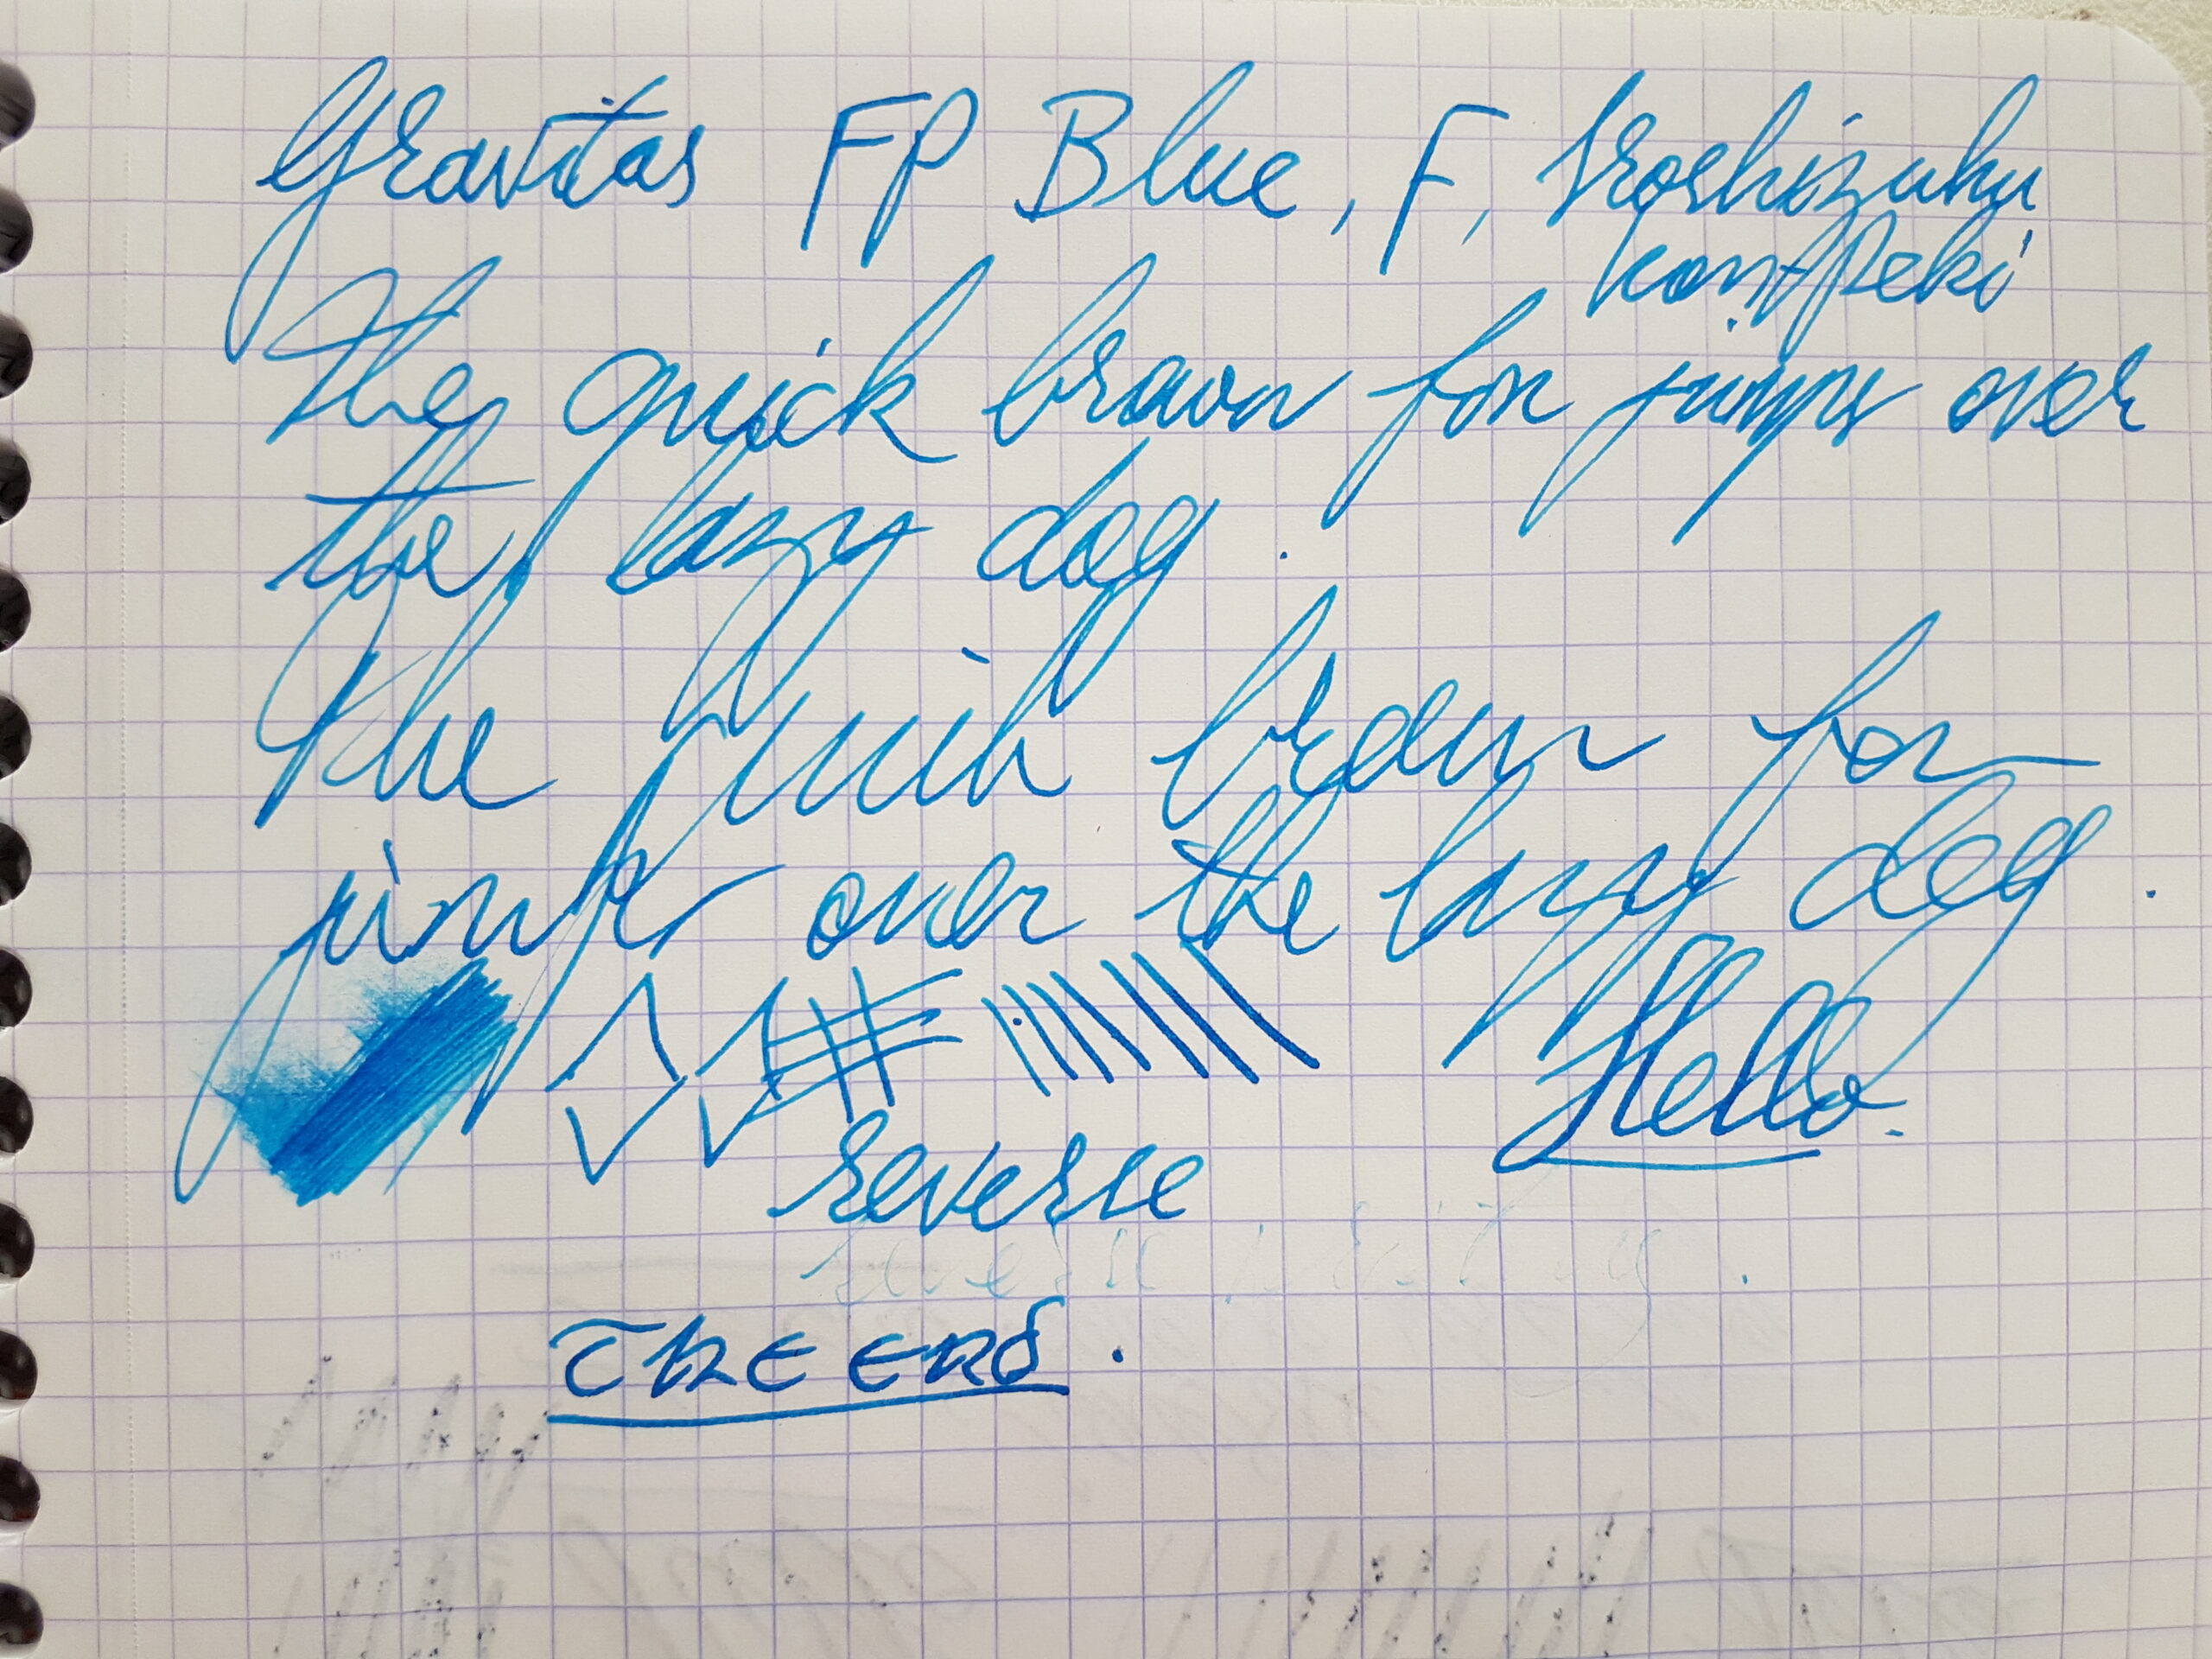 Gravitas FP Blue, F, Iroshizuku
kon-peki
The quick brown fox jumps over
the lazy dog.
The quick brown fox
jumps over the lazy dog.
Hello.
reverse
reverse writing.
THE END.